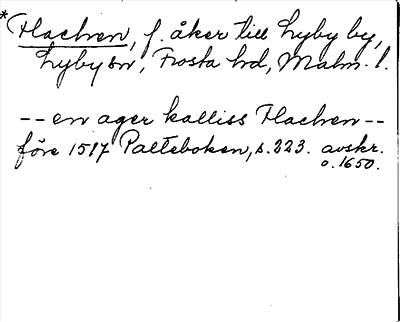 *Hachen, f. åker till Lyby by,
Lyby sn, Frosta hd, Malm. l.
-- en ager kalliss Hachen --
före 1517 Palteboken, s. 223. avskr.
o. 1650.